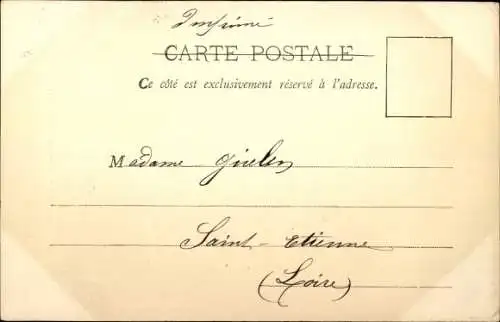 Imprimé
CARTE POSTALE
Ce côté est exclusivement réservé à l'adresse.
Madame
Saint-Etienne
(Loire)